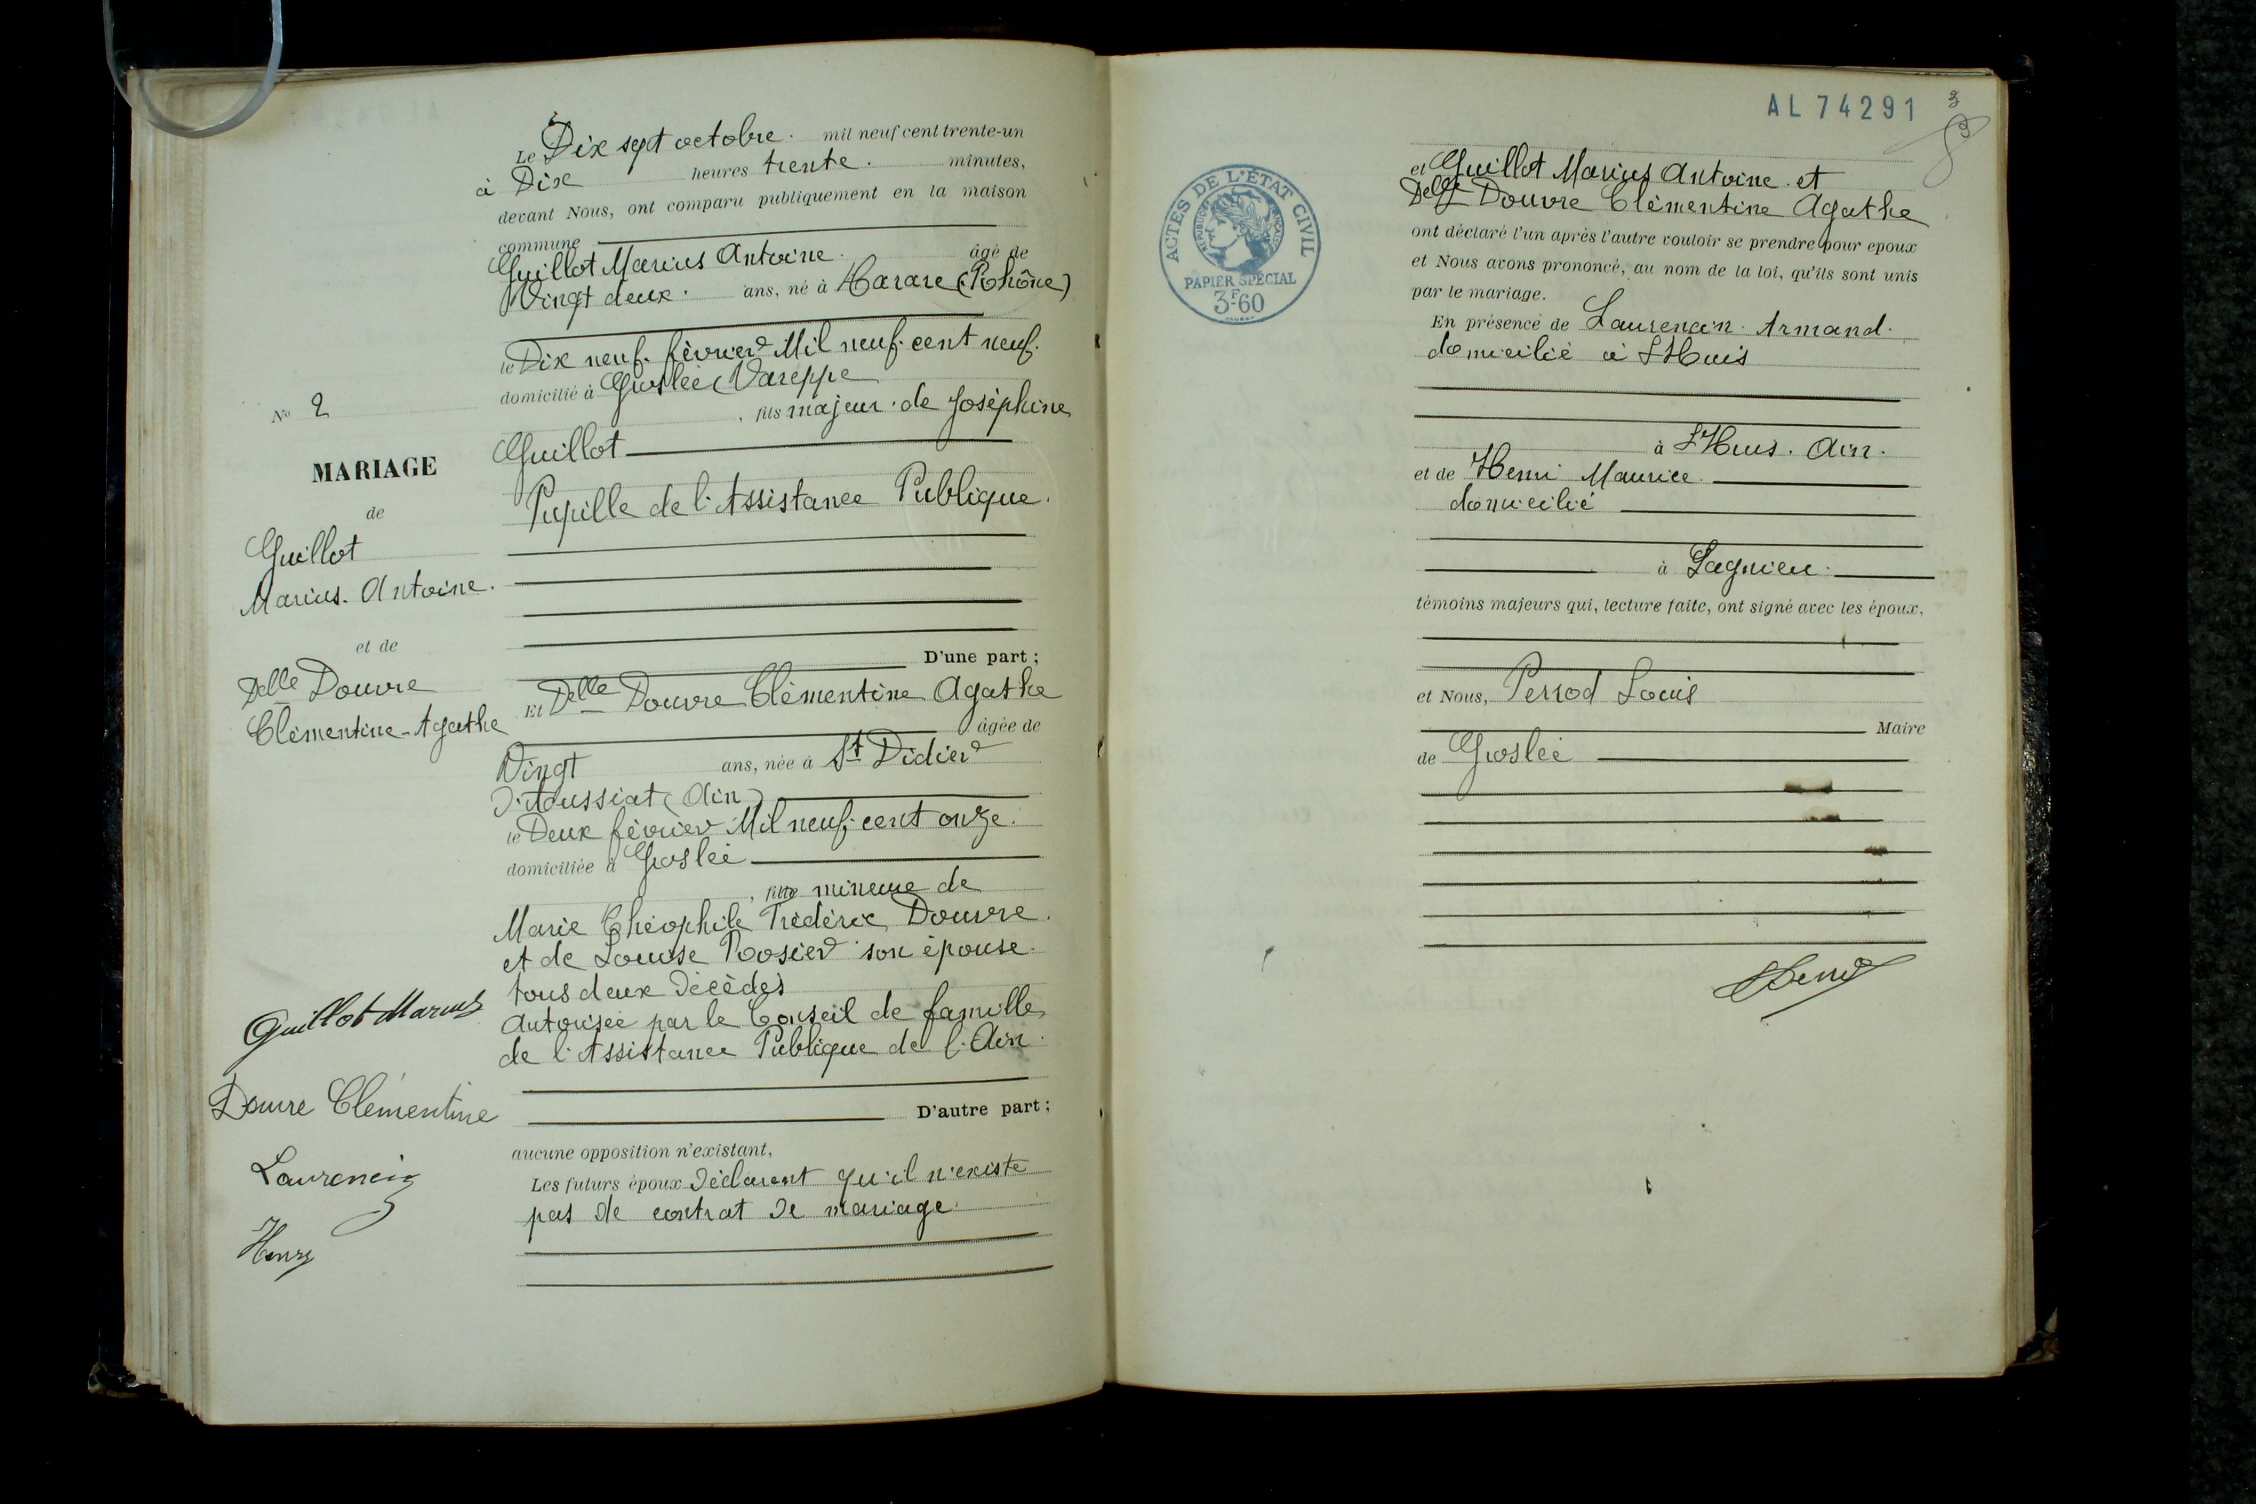 Le Dix sept octobre. mil neuf cent trente-un
à Dix heures trente. minutes,
devant Nous, ont comparu publiquement en la maison
commune
Guillot Marius Antoine. âgé de
Vingt deux. ans, né à Tarare (Rhône)
le Dix neuf. février Mil neuf. cent neuf.
domicilié à Groslée (Vareppe
, fils majeur. de Joséphine
Guillot
Pupille de l'Assistance Publique.
D'une part ;
Et Delle Douvre Clémentine Agathe
âgée de
Vingt ans, née à St Didier
d'Aussiat (Ain)
le Deux février Mil neuf. cent onze.
domiciliée à Groslée
, fille mineure de
Marie Théophile Frédéric Douvre.
et de Louise Rosier son épouse.
tous deux décédés
Autorisée par le Conseil de famille
de l'Assistance Publique de l'Ain.
D'autre part ;
aucune opposition n'existant,
Les futurs époux déclarent qu'il n'existe
pas de contrat de mariage.
No 2
MARIAGE
de
Guillot
Marius. Antoine.
et de
Delle Douvre
Clémentine-Agathe
Guillot Marius
Douvre Clémentine
Laurencin
Henry
AL 74291
ACTES DE L'ÉTAT CIVIL
RÉPUBLIQUE FRANÇAISE
PAPIER SPÉCIAL
3F60
et Guillot Marius Antoine. et
Delle Douvre Clémentine Agathe
ont déclaré l'un après l'autre vouloir se prendre pour époux
et Nous avons prononcé, au nom de la loi, qu'ils sont unis
par le mariage.
En présence de Laurencin. Armand.
domicilié à LHuis
à LHuis. Ain.
et de Henri Maurice.
domicilié
à Lagnieu.
témoins majeurs qui, lecture faite, ont signé avec les époux,
et Nous, Perrod Louis
Maire
de Groslée